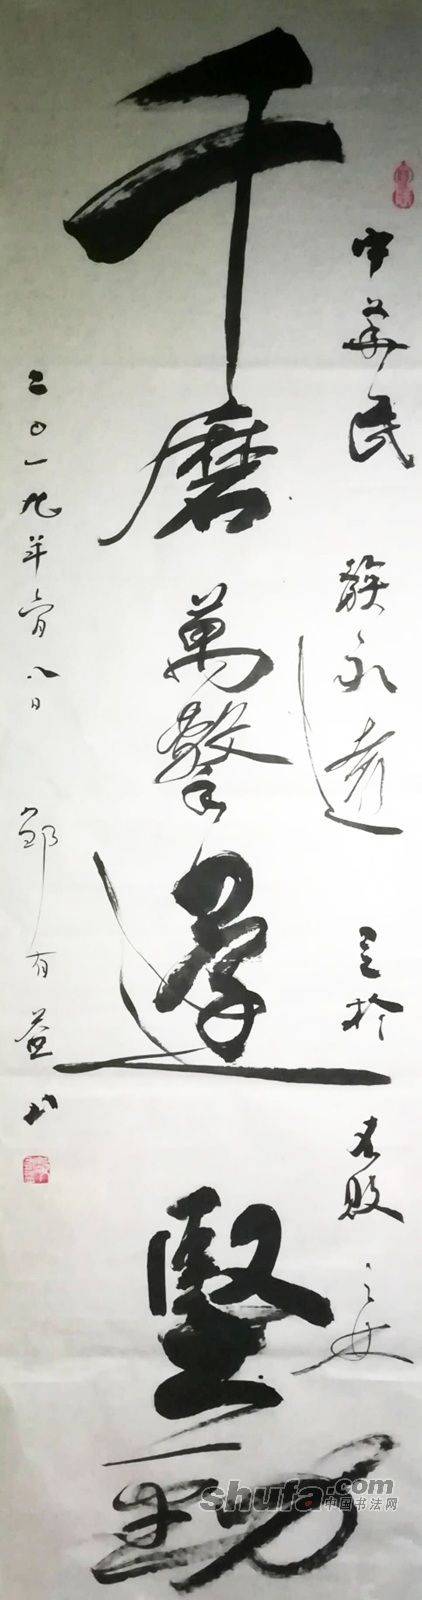 中华民族永远立於不败之地
千磨萬擊還堅勁
二〇一九年六月八日 邹有益书
shufa.com
中国书法网